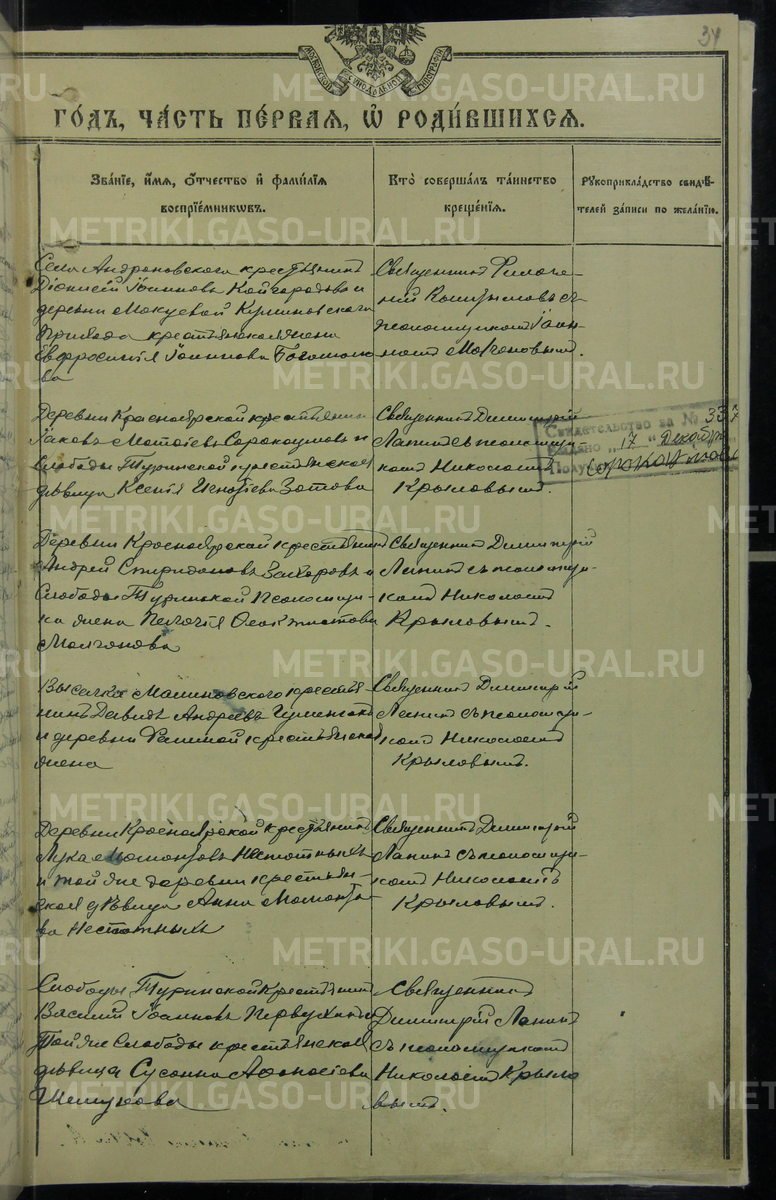 34
МОСКОВСКОЙ СѴНОДАЛЬНОЙ ТИПОГРАФІИ
ГО́ДЪ, ЧА́СТЬ ПЕ́РВАѦ, Ѽ РОДИ́ВШИХСѦ.
Зва́нїе, и҆́мѧ, ѻ҆́тчество и҆ фами́лїѧ
воспрїе́мникѡвъ.
Кто̀ соверша́лъ та́инство
креще́нїѧ.
Рꙋкоприкла́дство свидѣ́-
телей за́писи по жела́нїю.
Села Андроновскаго крестьянинъ
Діонисій Іоанновъ Кайгородовъ и
деревни Макуевой Куминовскаго
прихода крестьянская жена
Евфросинія Іоаннова Богомоло
ва
Священникъ
съ
псаломщикомъ Іоан-
номъ Молчановымъ.
Деревни Красноярской крестьянинъ
Іаковъ Матѳіевъ Сорокоумовъ и
Слободы Туринской крестьянская
дѣвица Ксенія Игнатіева Зотова
Священникъ Димитрій
Лапинъ съ псаломщи-
комъ Николаемъ
Крыловымъ.
Свидетельство за № 337
Выдано „17“ Декабр
Полу
Деревни Красноярской крестьянинъ
Андрей Спиридоновъ Захаровъ и
Слободы Туринской псаломщи-
ка жена Пелагія
Молчанова
Священникъ Димитрій
Лапинъ съ псаломщи-
комъ Николаемъ
Крыловымъ.
Выселка Малиновскаго крестья
нинъ Давидъ Андреевъ
и деревни крестьянская
жена
Священникъ Димитрій
Лапинъ съ псаломщи-
комъ Николаемъ
Крыловымъ.
Деревни Красноярской крестьянинъ
Лука Мамонтовъ Неспотныхъ
и той же деревни крестьян-
ская дѣвица Анна Мамонто-
ва Неспотныхъ
Священникъ Димитрій
Лапинъ съ псаломщи-
комъ Николаемъ
Крыловымъ.
Слободы Туринской крестьянинъ
Василій Іоанновъ Первухинъ и
той же слободы крестьянская
дѣвица Сусанна Аѳанасіева
Шемухова
Священникъ
Димитрій Лапинъ
съ псаломщикомъ
Николаемъ Крыло
вымъ.
METRIKI.GASO-URAL.RU